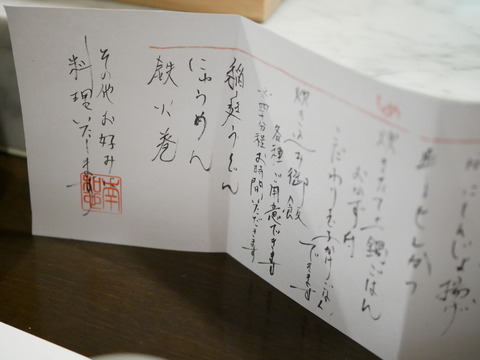 しんじょ揚げ
しめ
炊きたて土鍋ごはん
おかず付
こだわり玉子かけごはん
できます
炊き込み御飯
各種ご用意できます
※四十分程お時間いただきます
稲庭うどん
にゅうめん
鉄火巻
その他お好み
料理いたします